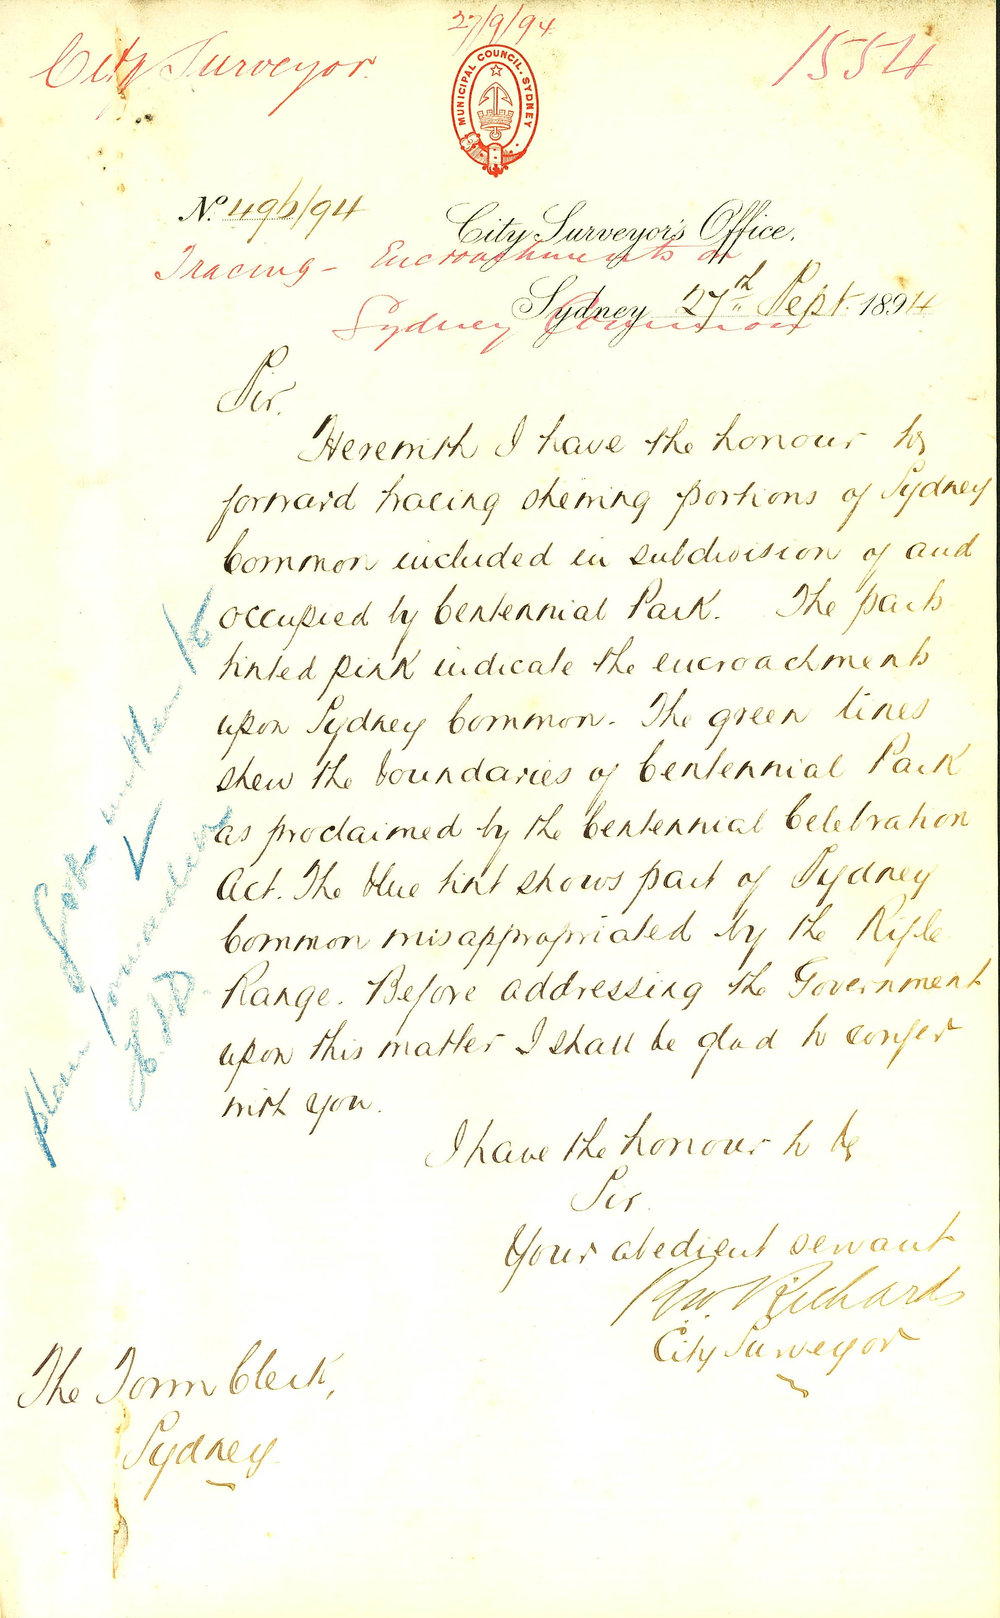 27/9/94
City Surveyor.
1554
MUNICIPAL COUNCIL. SYDNEY
No. 496/94
City Surveyor's Office.
Tracing - Encroachments on
Sydney Common
Sydney 27th Sept. 1894
Sir.
Herewith I have the honour to
forward tracing shewing portions of Sydney
Common included in subdivision of and
occupied by Centennial Park. The parts
tinted pink indicate the encroachments
upon Sydney Common. The green lines
shew the boundaries of Centennial Park
as proclaimed by the Centennial Celebration
Act. The blue tint shows part of Sydney
Common misappropriated by the Rifle
Range. Before addressing the Government
upon this matter I shall be glad to confer
with you.
I have the honour to be
Sir.
Your obedient servant
RW. Richards
City Surveyor
The Town Clerk,
Sydney
plan